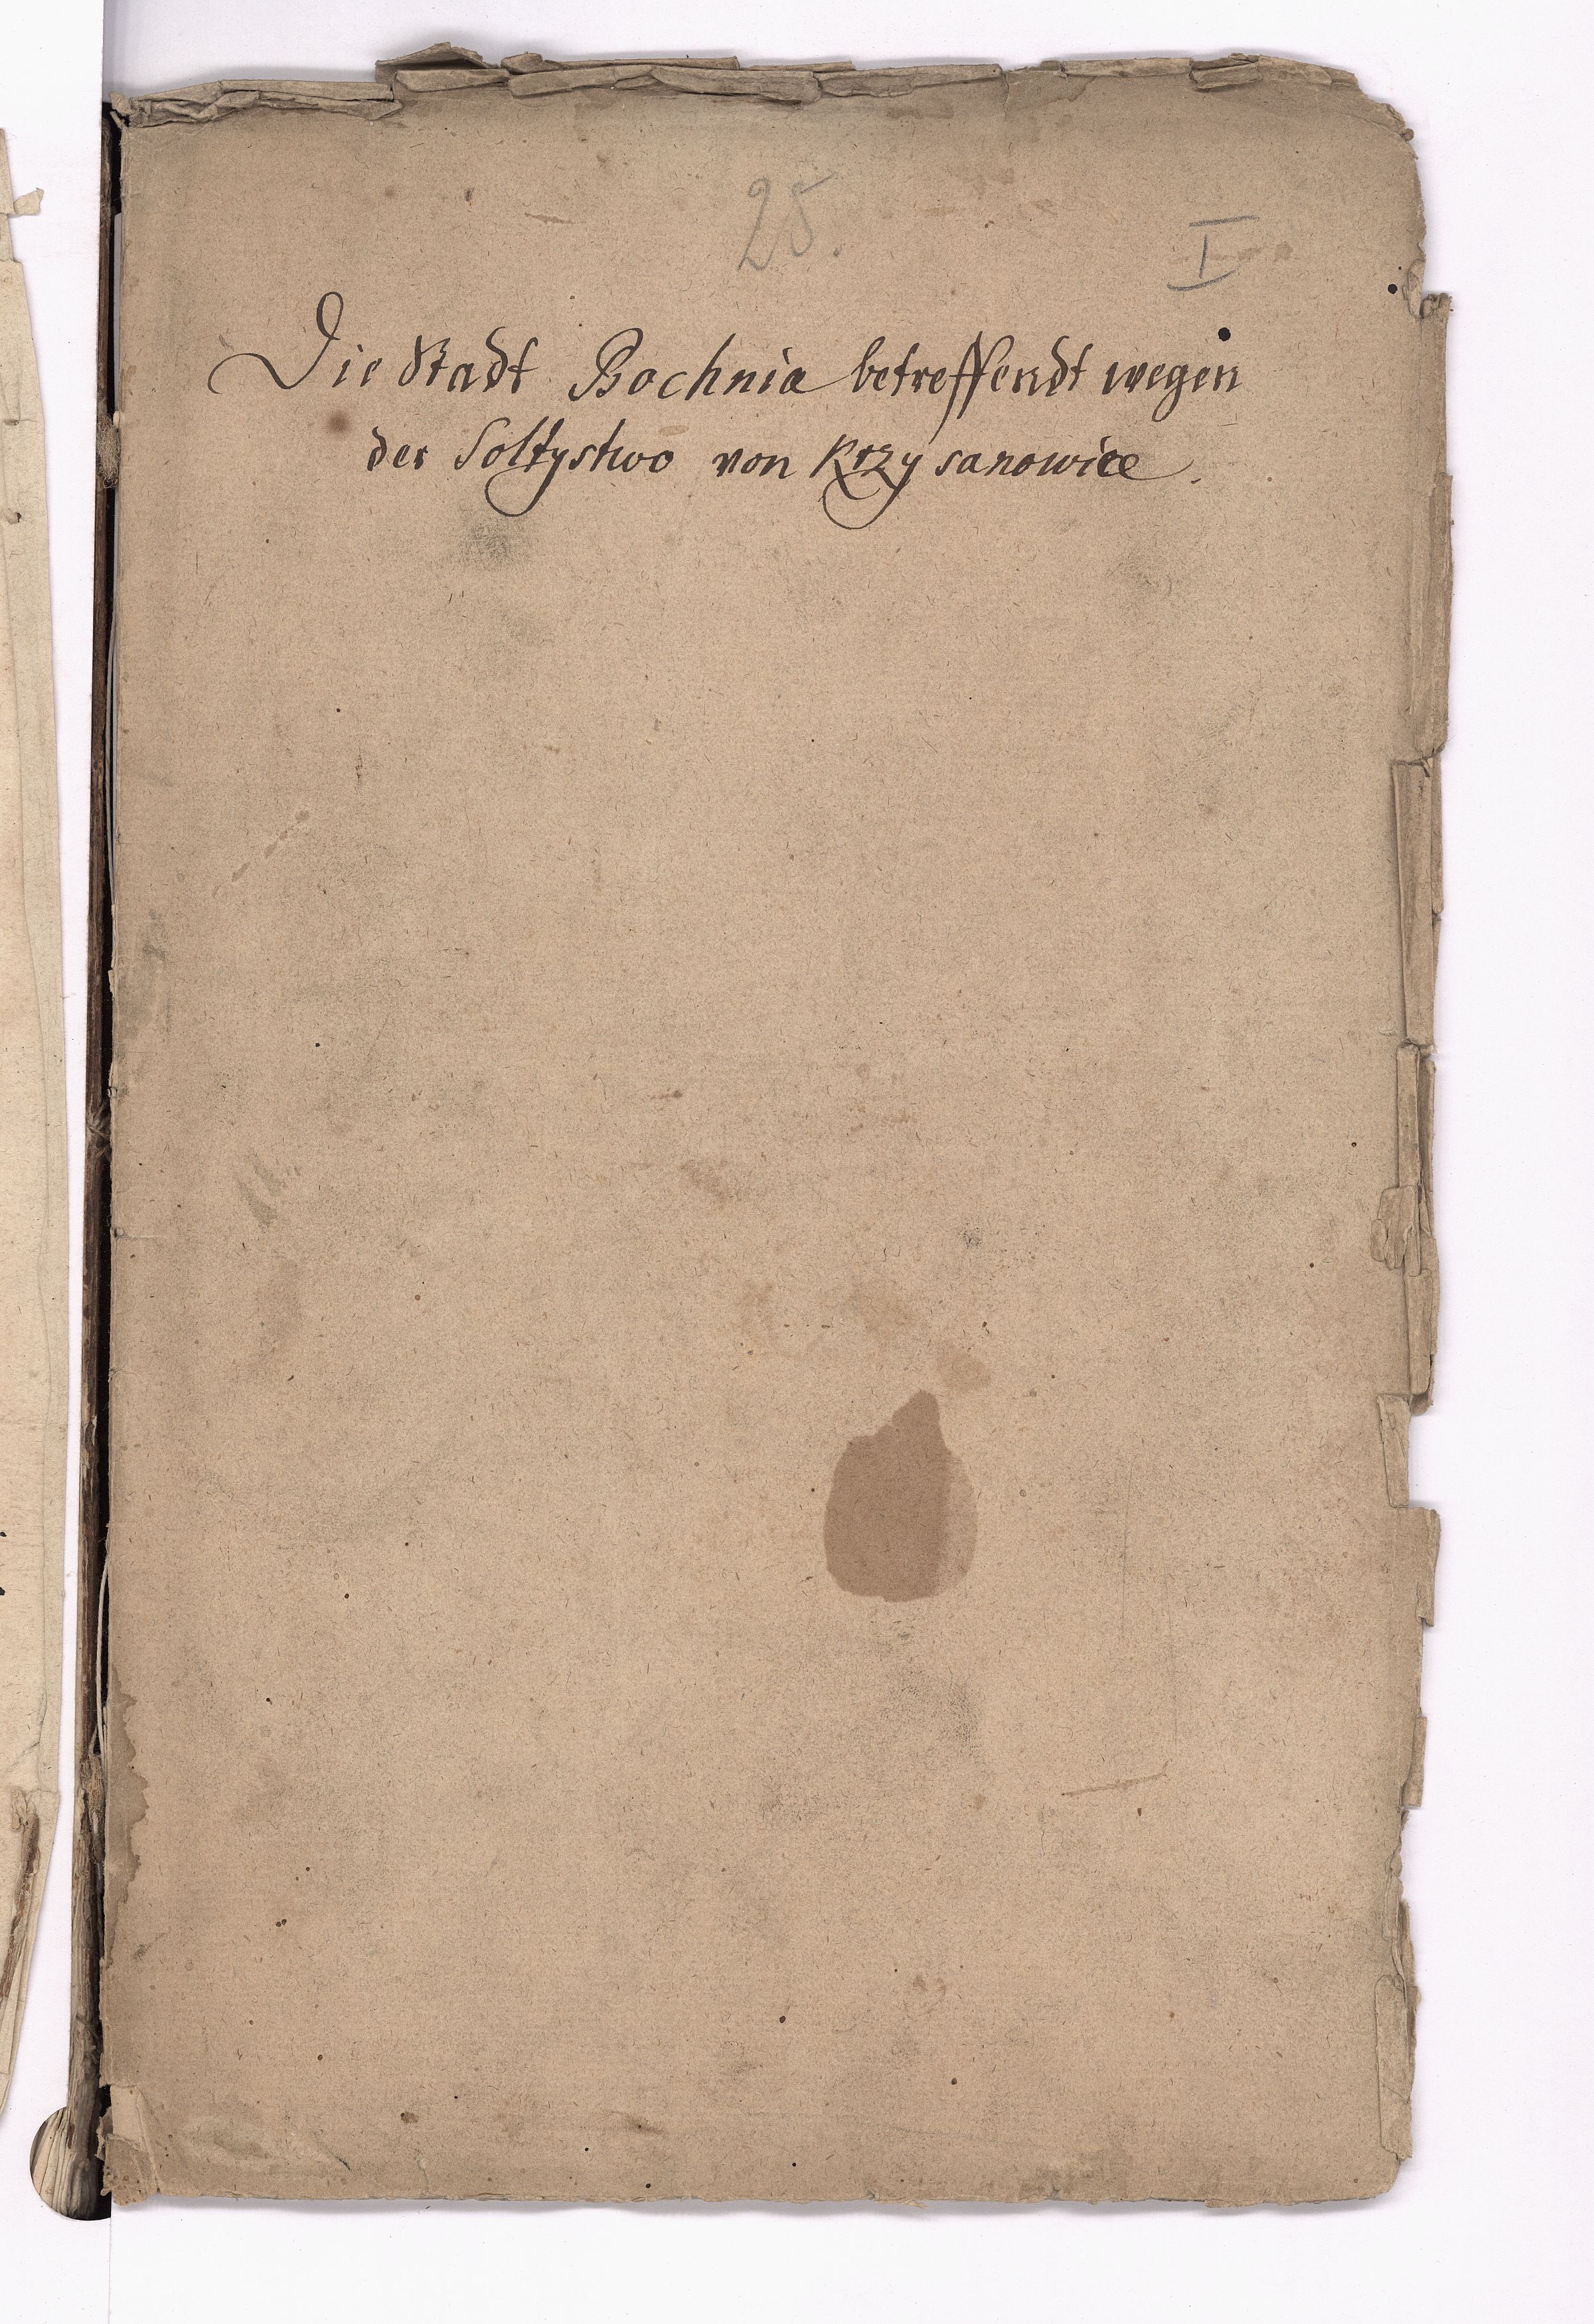 25.
I
Die Stadt Bochnia betreffendt wegen
der Soltystwo von Krzysanowice.